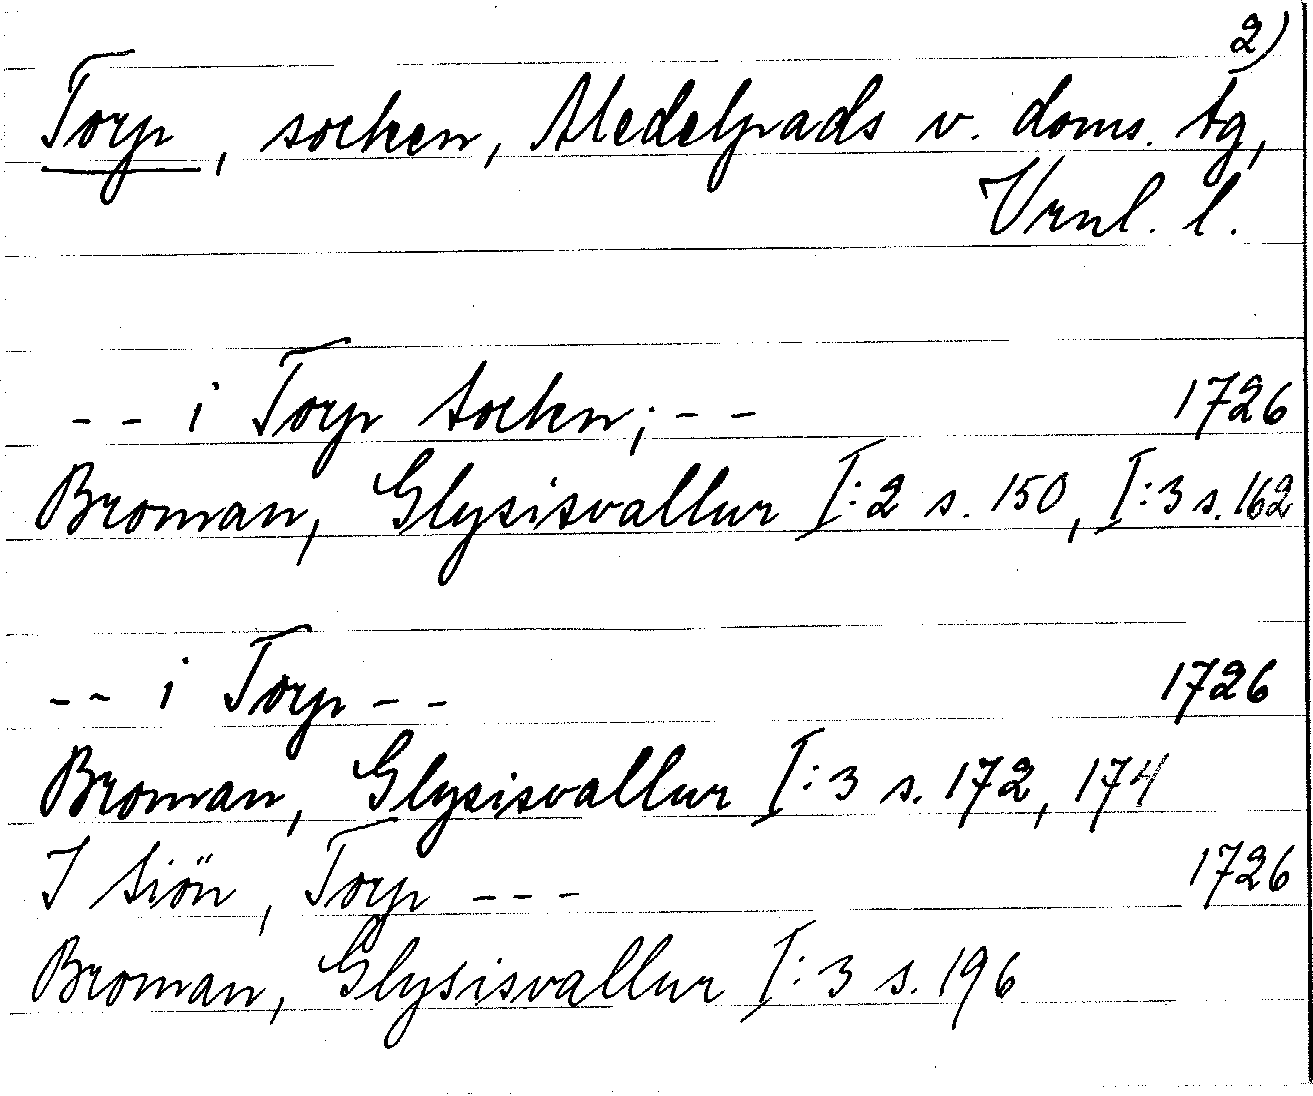 2)
Torp, socken, Medelpads v. doms. tg,
Vrnl. l.
-- i Torp Socken; -- 1726
Broman, Glysisvallur I:2 s. 150, I:3 s. 162
-- i Torp -- 1726
Broman, Glysisvallur I:3 s. 172, 174
I Siön, Torp --- 1726
Broman, Glysisvallur I:3 s. 196